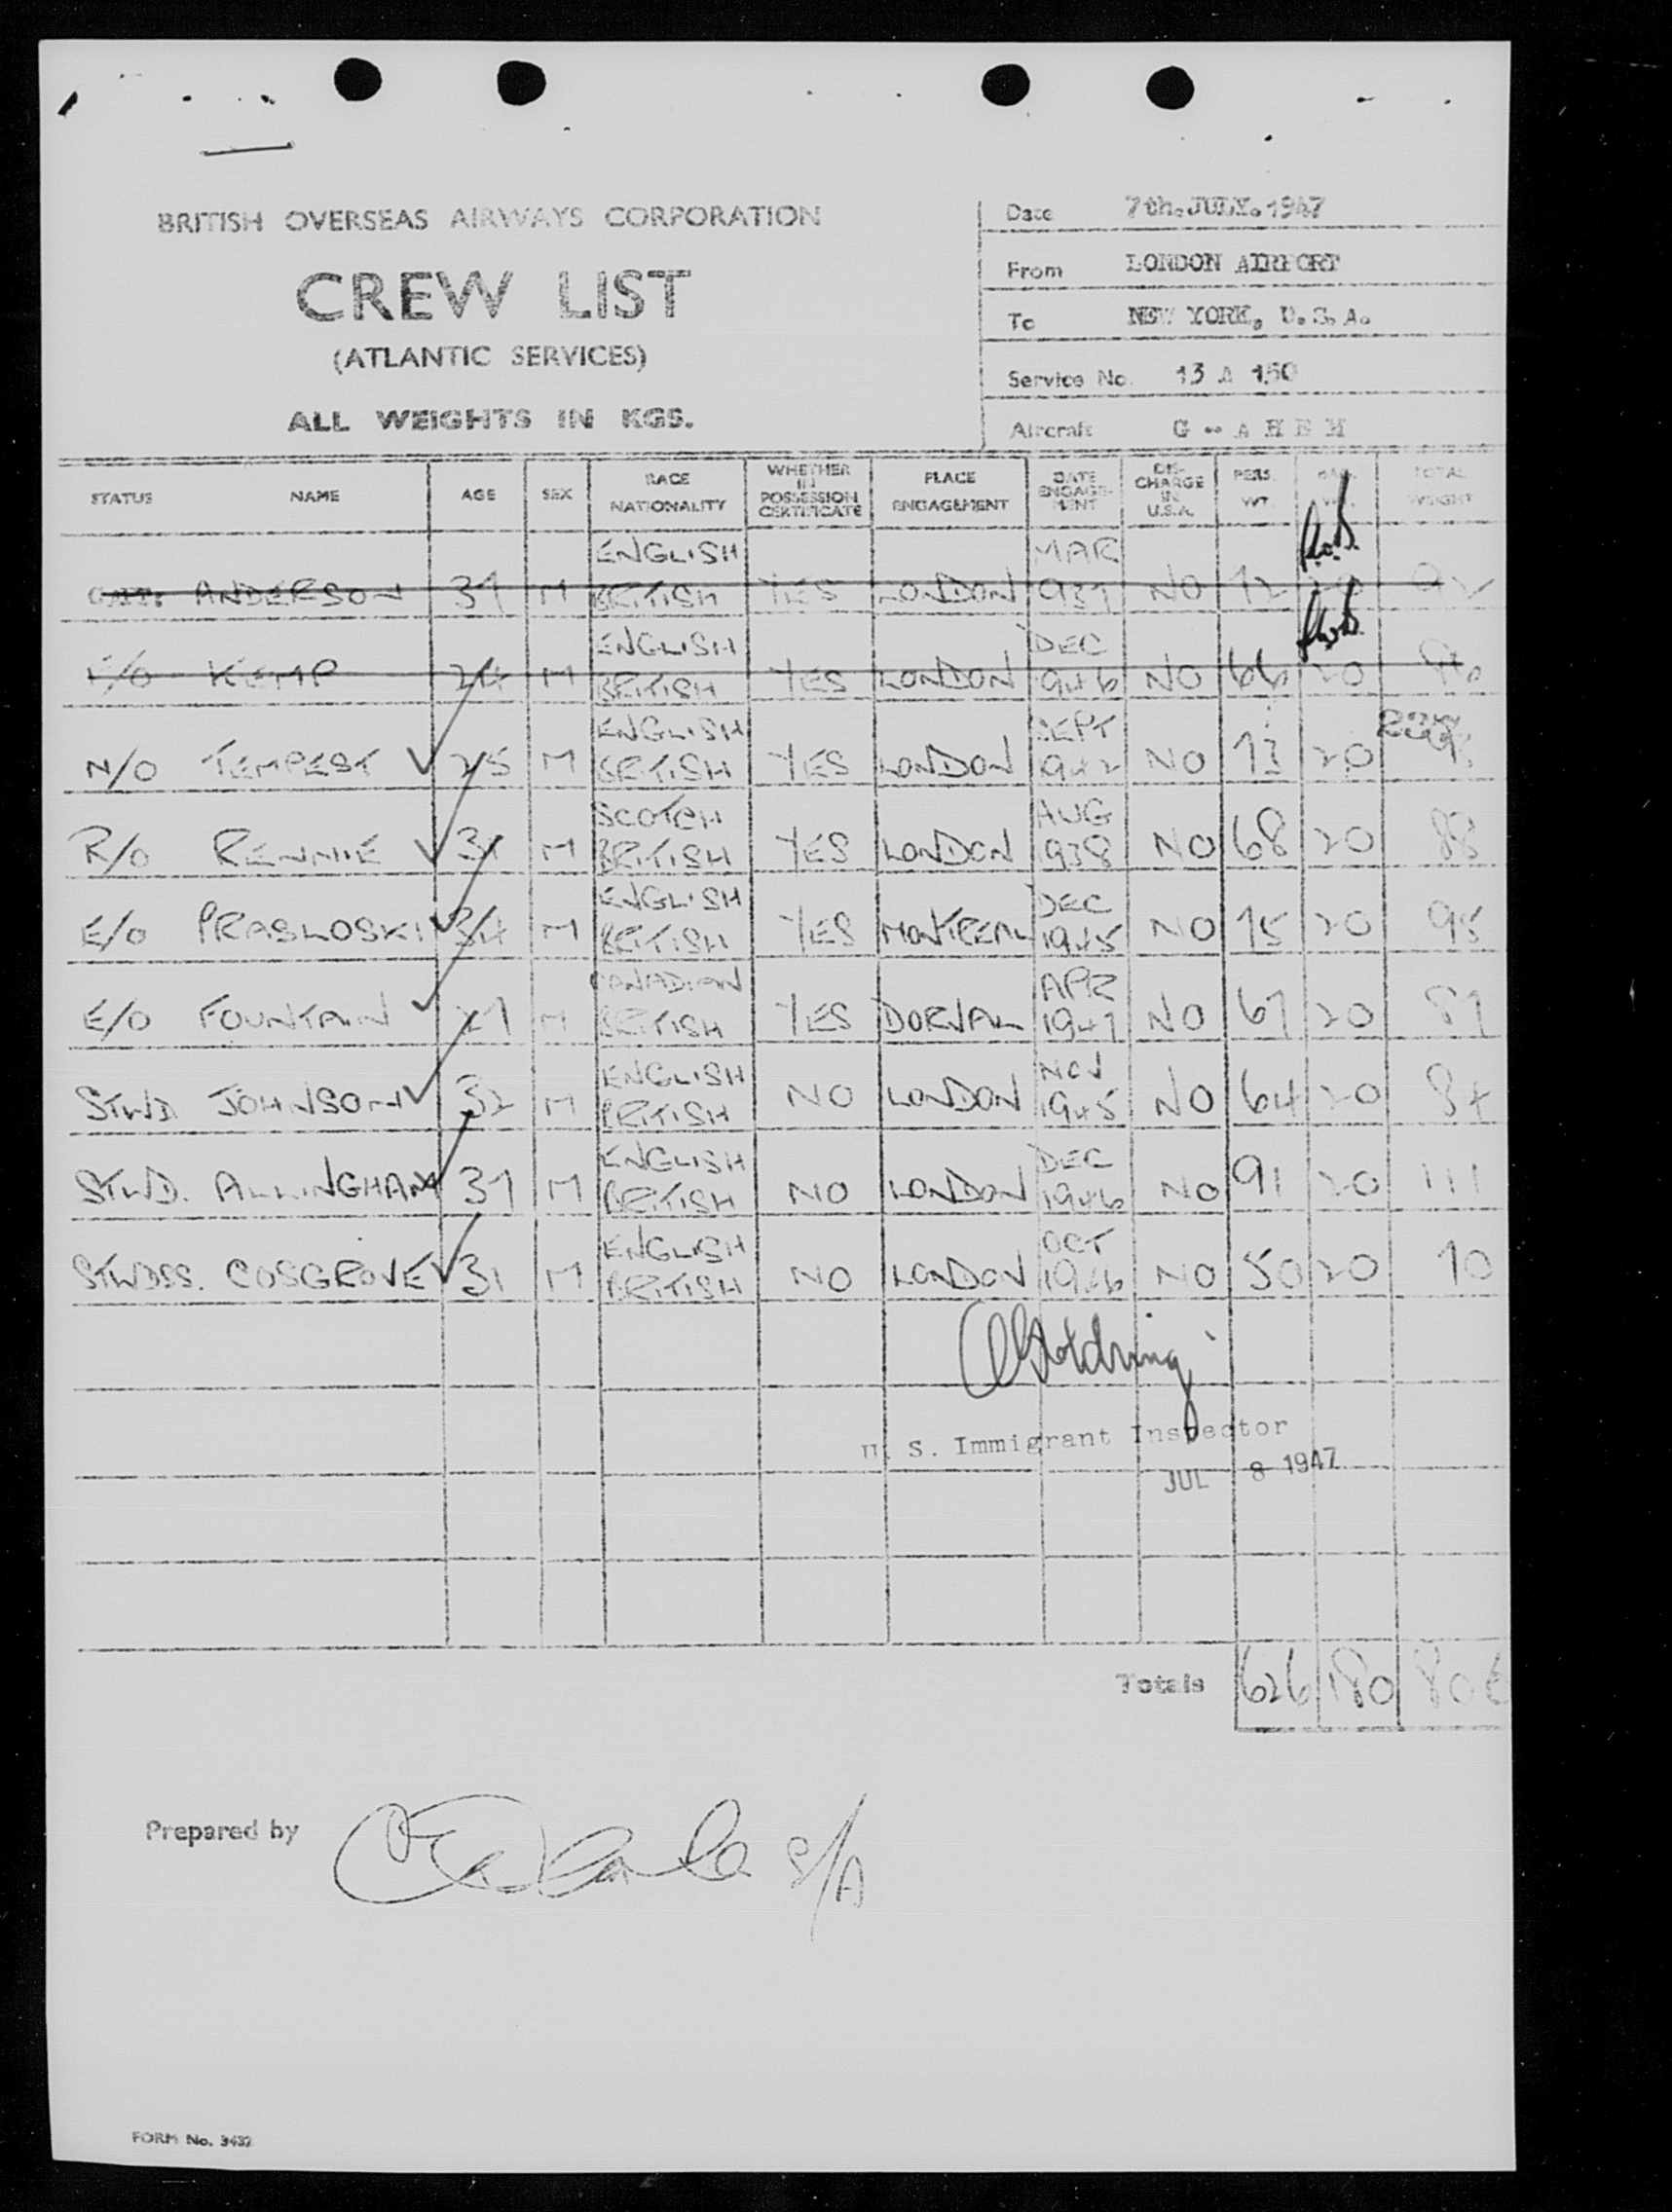 BRITISH OVERSEAS AIRWAYS CORPORATION
CREW LIST
(ATLANTIC SERVICES)
ALL WEIGHTS IN KGS.
Date 7th.JULY.1947
From LONDON AIRPORT
To NEW YORK, U.S.A.
Service No. 13 A 150
Aircraft G - A H E M
STATUS NAME AGE SEX RACE NATIONALITY WHETHER IN POSSESSION CERTIFICATE PLACE ENGAGEMENT DATE ENGAGEMENT DISCHARGE IN U.S.A. PERS. WT. TOTAL WEIGHT
ENGLISH MAR
CAPT. ANDERSON 37 M BRITISH YES LONDON 937 NO 72 20 92
ENGLISH DEC
F/O KEMP 24 M BRITISH YES LONDON 946 NO 66 20 86
ENGLISH SEPT
N/O TEMPEST 25 M BRITISH YES LONDON 942 NO 73 20 93
SCOTCH AUG
R/O RENNIE M BRITISH YES LONDON 1938 NO 68 20 88
ENGLISH DEC
E/O PRASLOSKI 34 M BRITISH YES MONTREAL 1945 NO 75 20 95
CANADIAN APR
E/O FOUNTAIN 27 M BRITISH YES DORVAL 1947 NO 67 20 87
ENGLISH NOV
STWD JOHNSON 32 M BRITISH NO LONDON 1945 NO 64 20 84
ENGLISH DEC
STWD. ALLINGHAM 37 M BRITISH NO LONDON 1946 NO 91 20 111
ENGLISH OCT
STWDSS. COSGROVE 31 M BRITISH NO LONDON 1946 NO 50 20 70
U. S. Immigrant Inspector
JUL 8 1947
Totals 626 180 806
Prepared by
S/A
FORM No. 3432